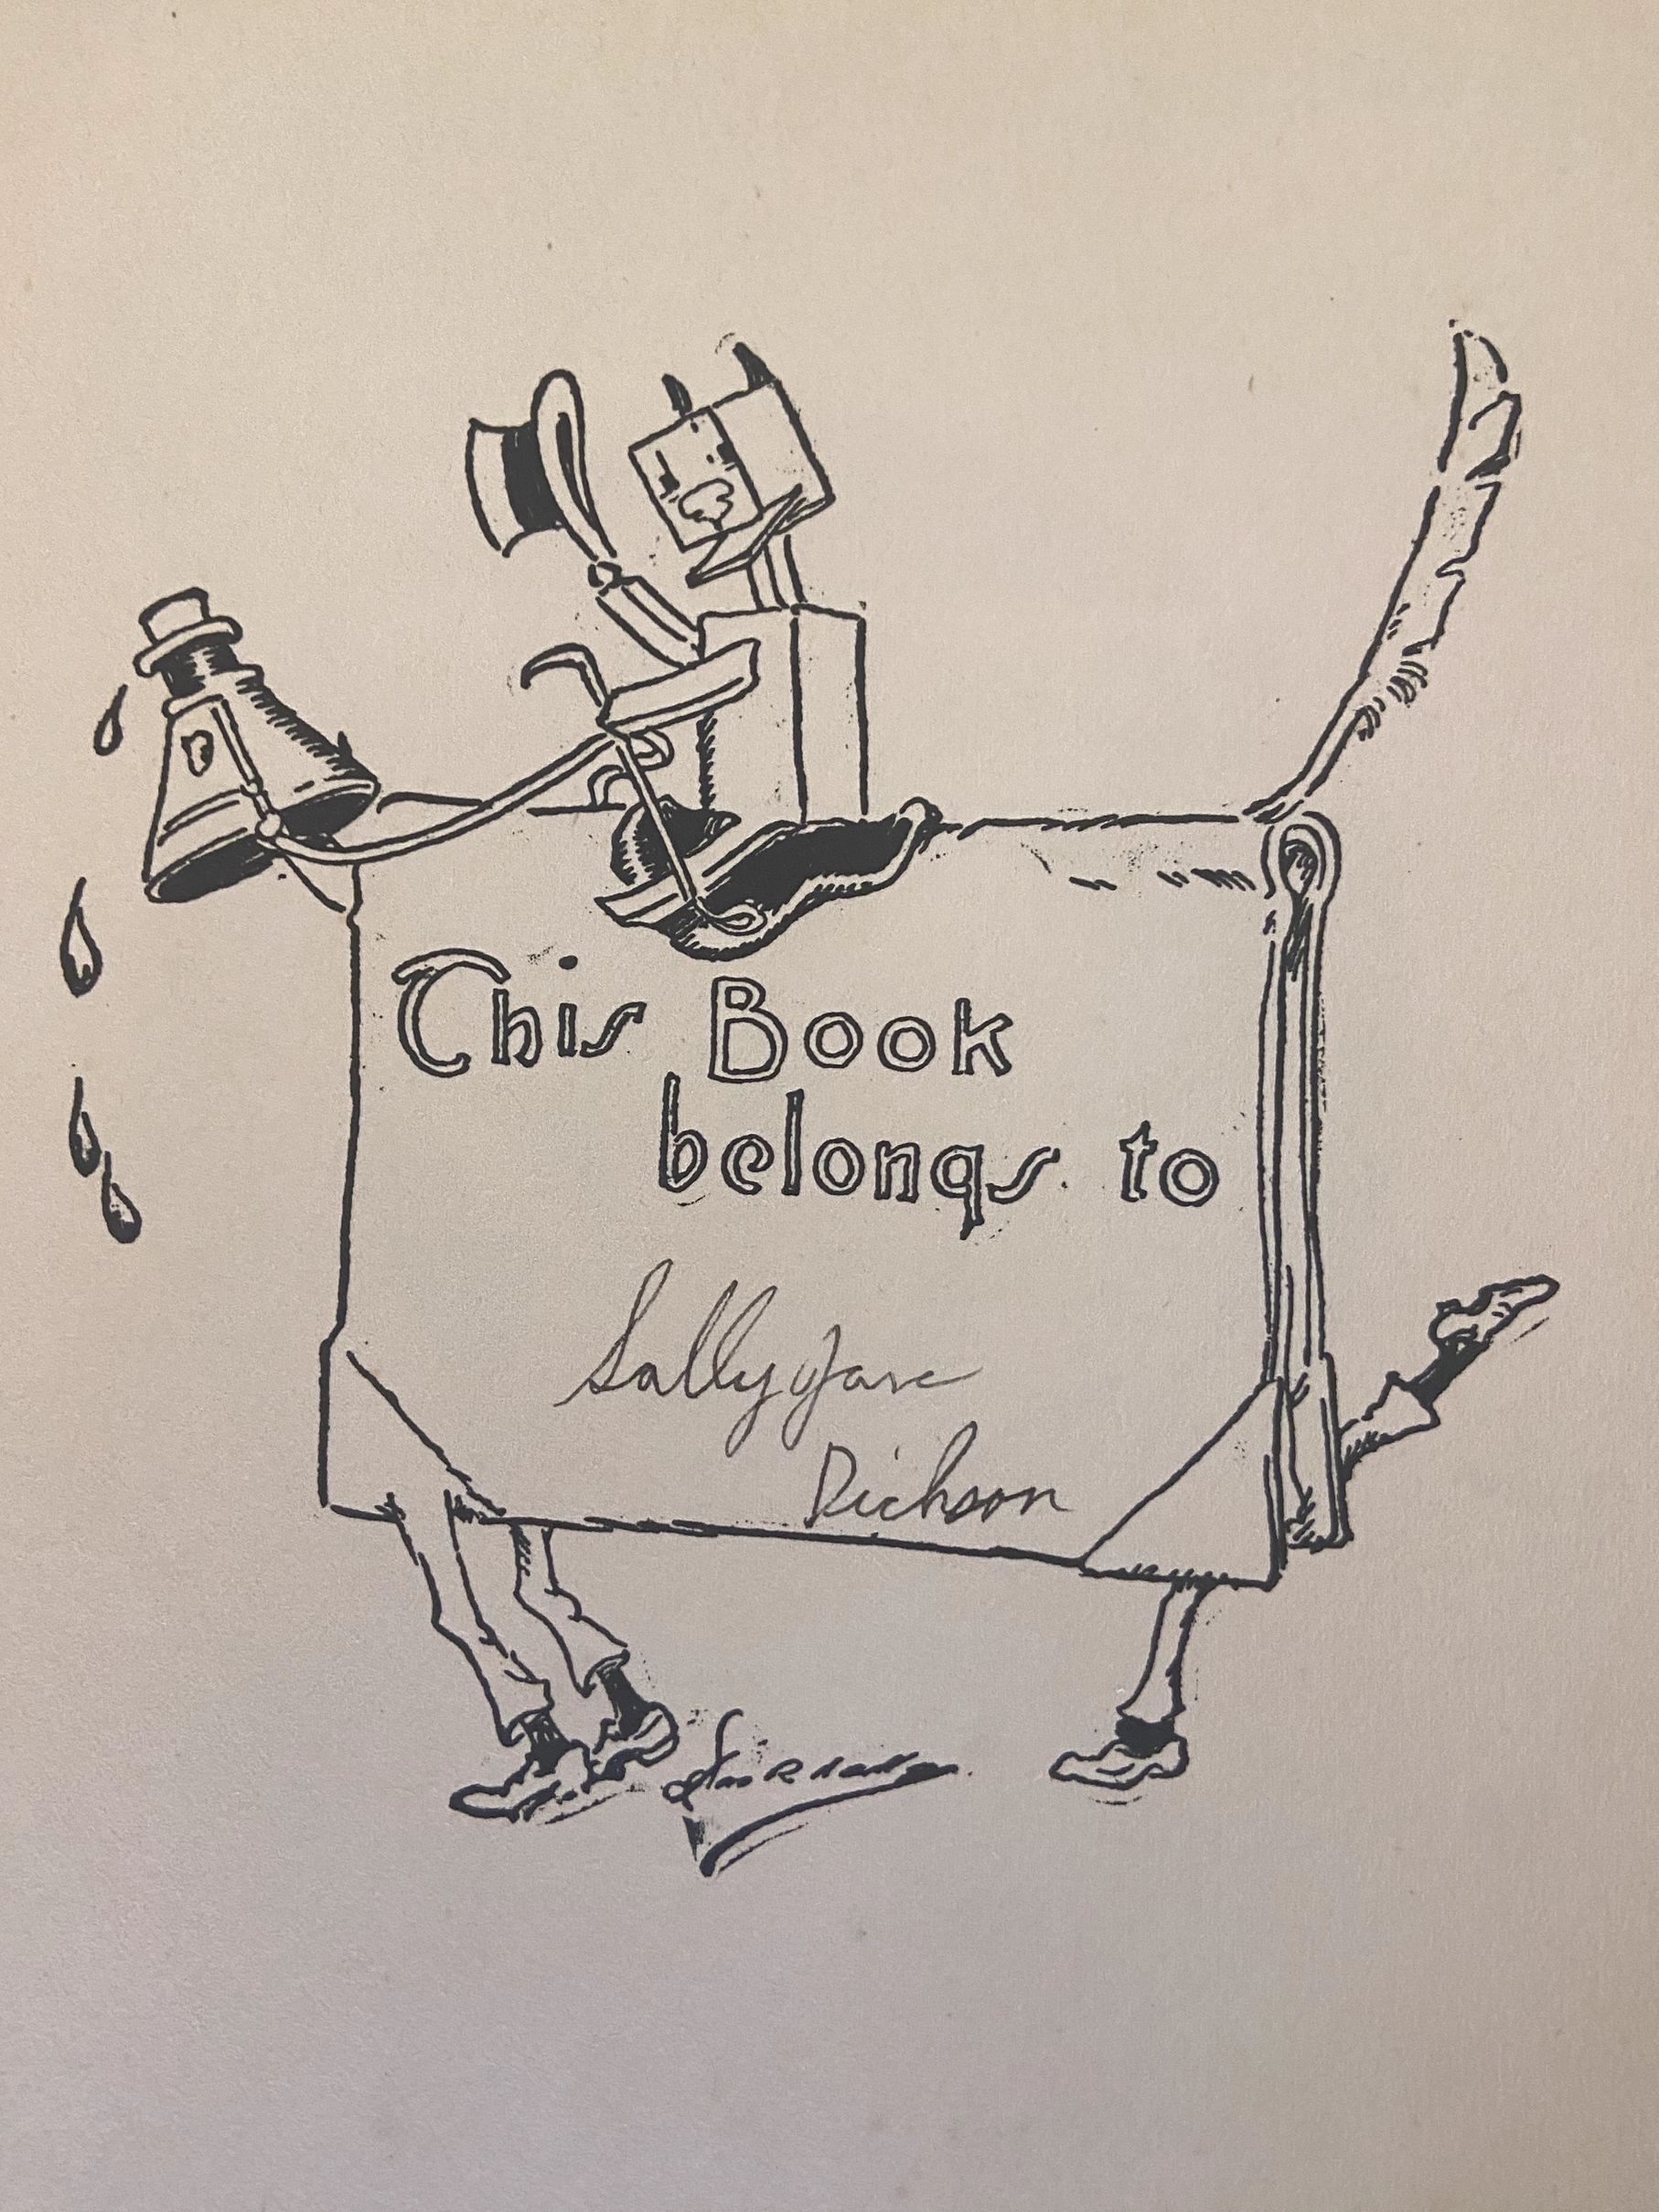 This Book
belongs to
Sally Jane
Dickson